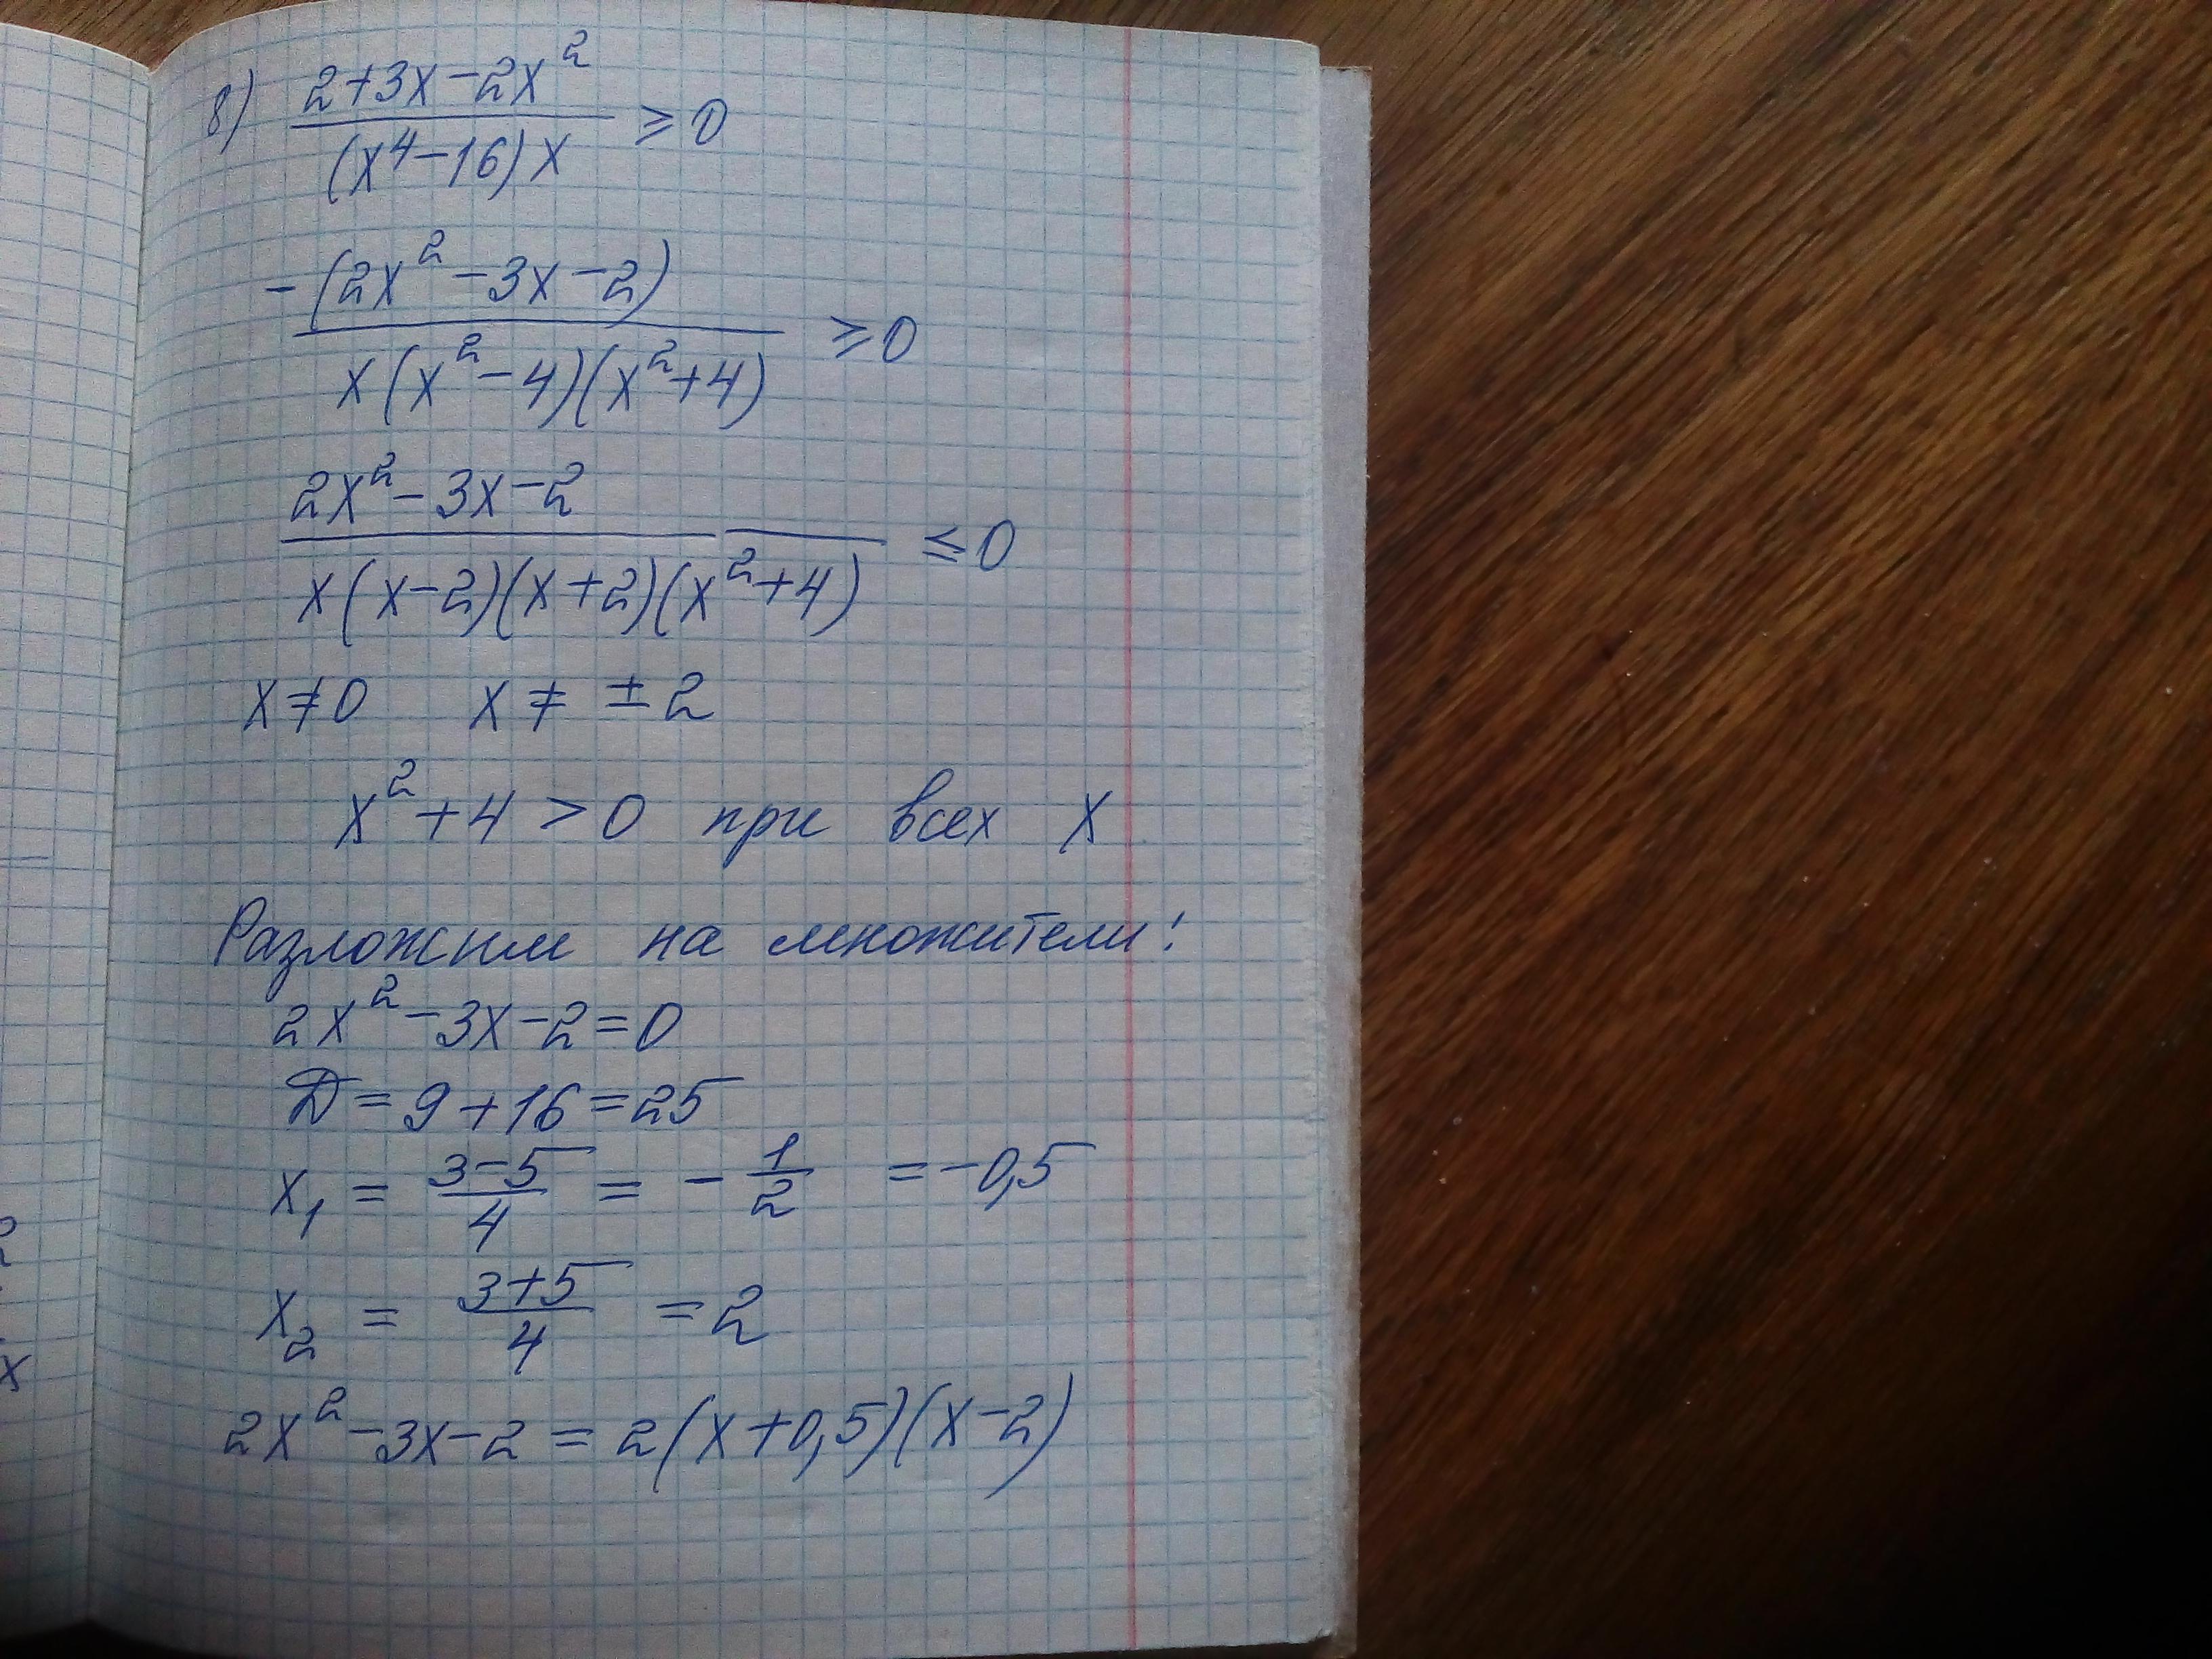 8) (2+3x-2x²)/((x⁴-16)x) ≥ 0
-(2x²-3x-2)/(x(x²-4)(x²+4)) ≥ 0
(2x²-3x-2)/(x(x-2)(x+2)(x²+4)) ≤ 0
x≠0 x ≠ ±2
x²+4 > 0 при всех x
Разложим на множители:
2x²-3x-2=0
D = 9+16=25
x₁ = (3-5)/4 = -1/2 = -0,5
x₂ = (3+5)/4 = 2
2x²-3x-2 = 2(x+0,5)(x-2)
2
x